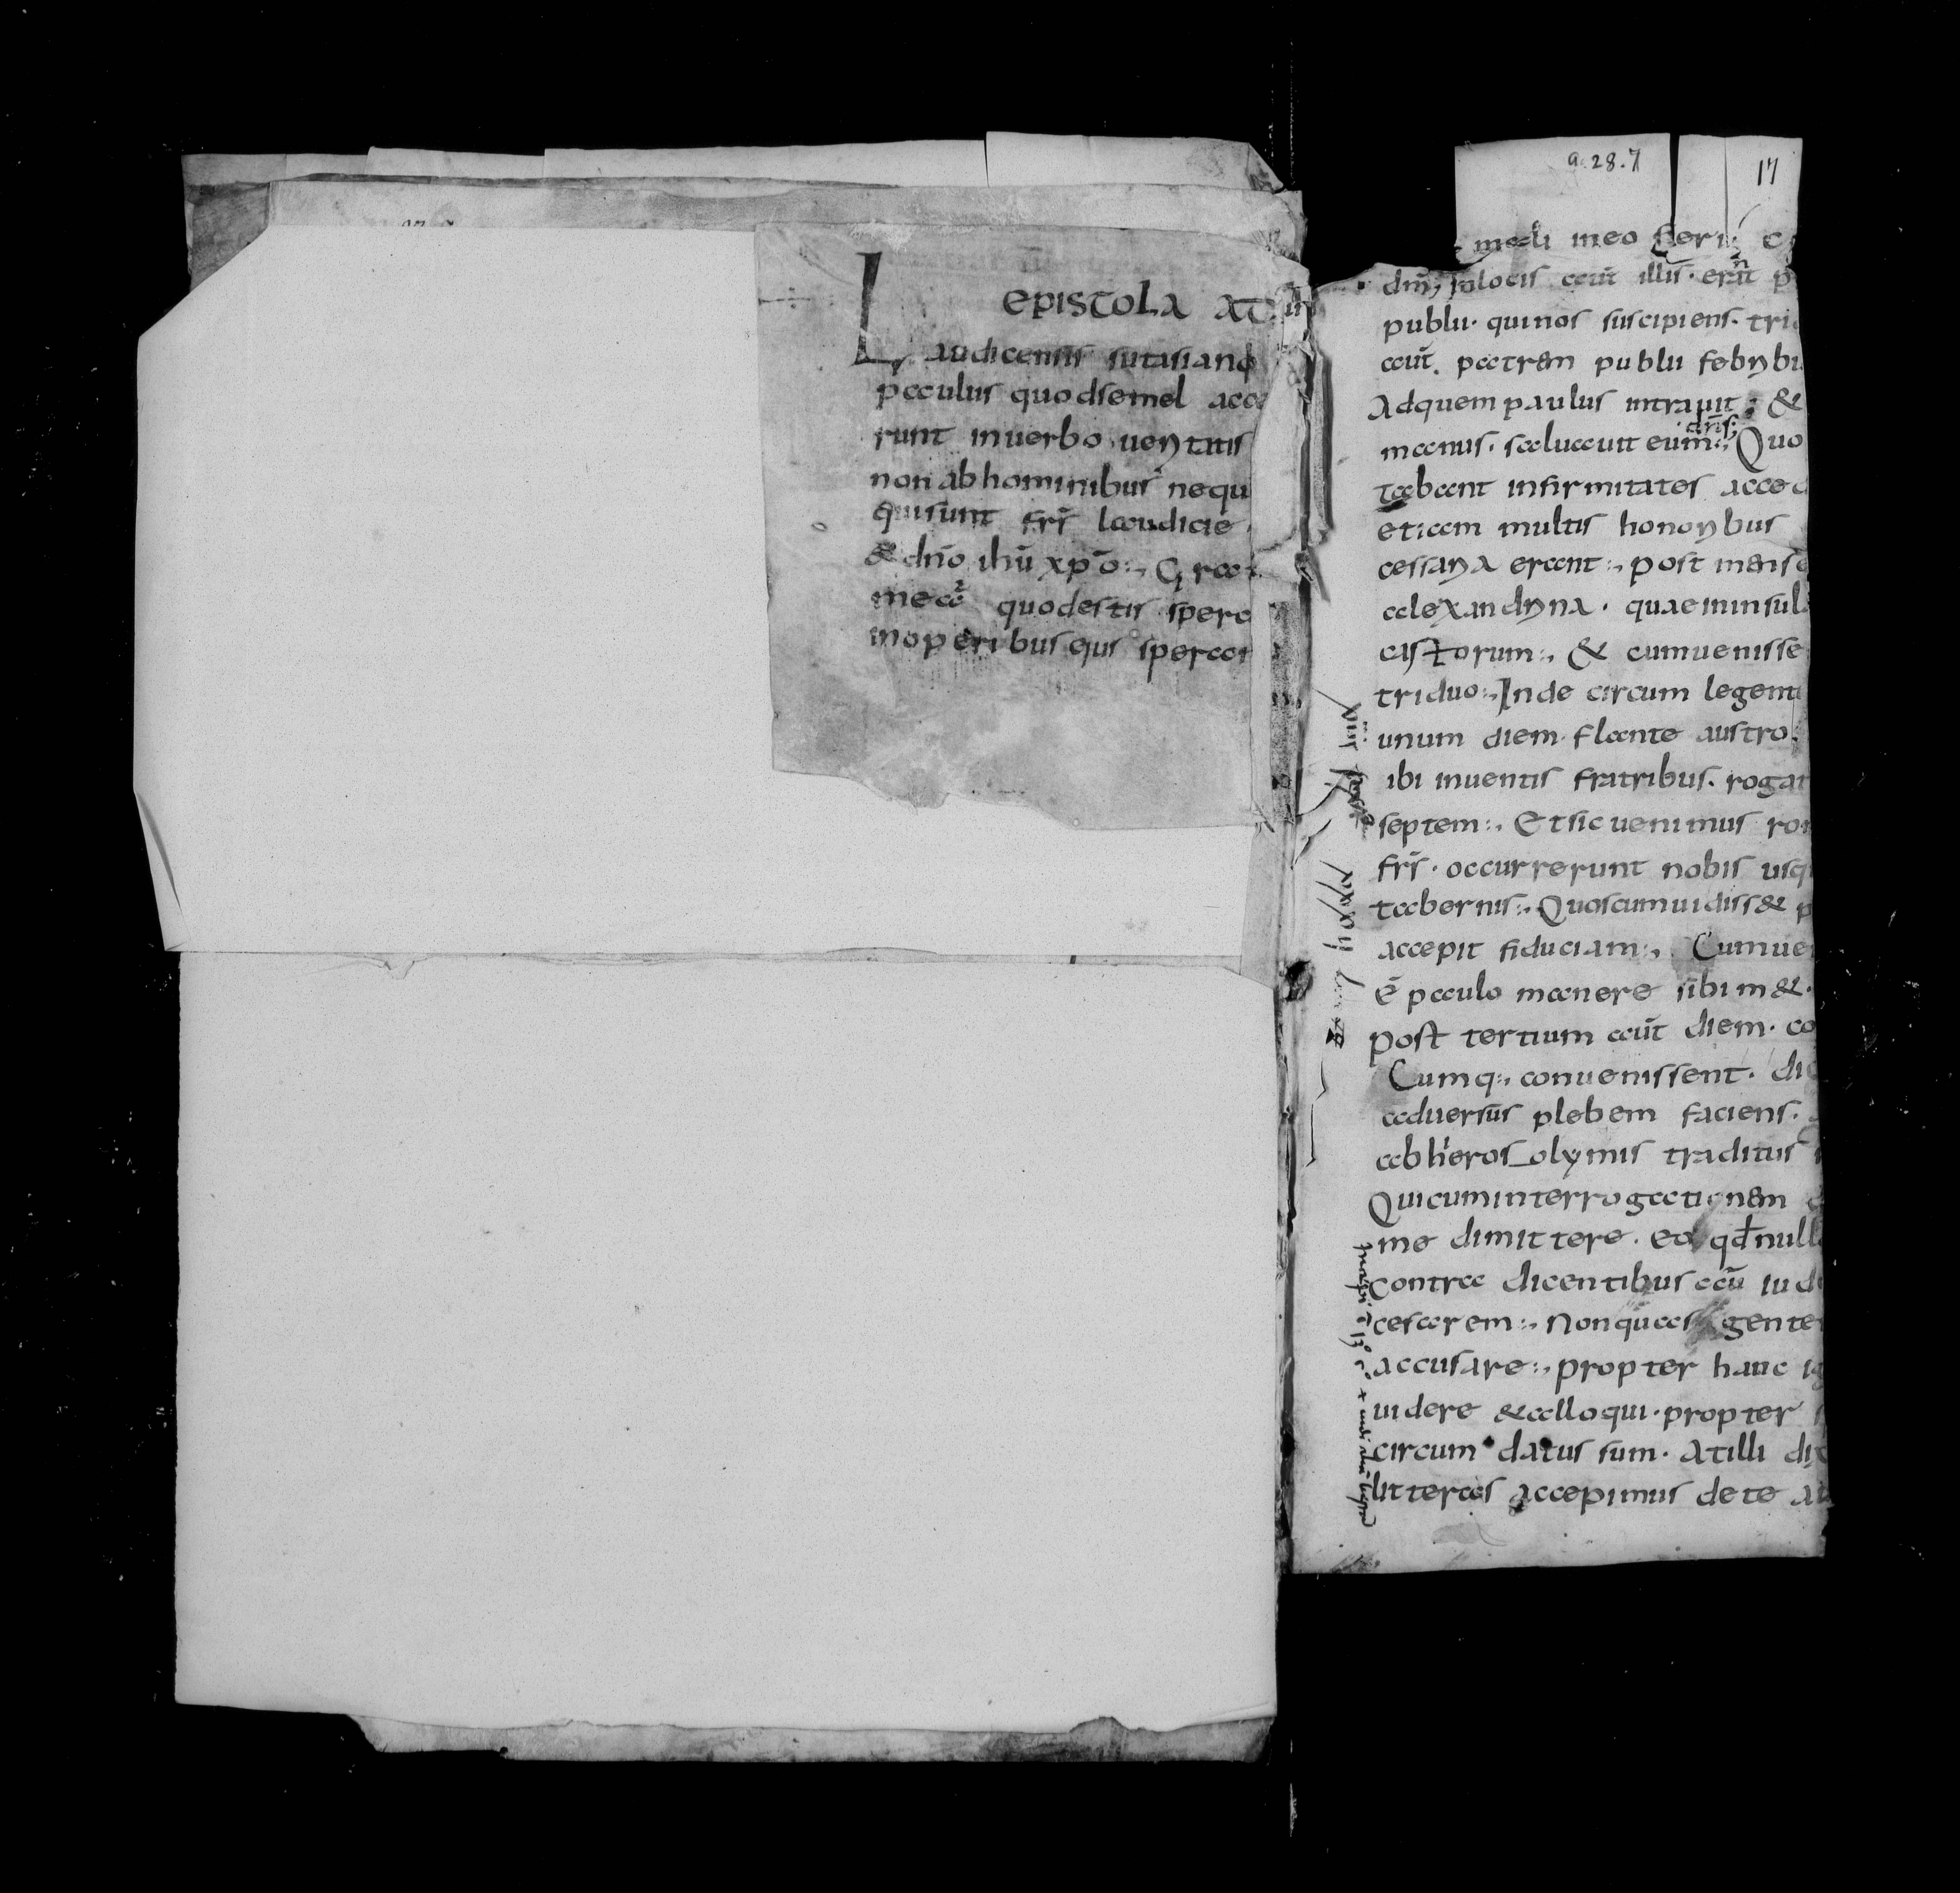 epistola at
Laudicensis sutasiano
paulus quodsemel acce
runt inuerbo ueritatis
non abhominibus nequ
quisunt frs̄ laudicie
& dn̄o ihū xpō:, Gra
mea quodestis spera
inoperibus eius speran
a. 28. 7
17
modi meo fieri
locis aūt illis. erat p
publii. quinos suscipiens. tri
aūt. patrem publii febribu
Adquem paulus intrauit: &
manus. saluauit eum:, Quo
dn̄s;
tabant infirmitates acced
etiam multis honoribus
cessaria erant:, post mense
alexandrina. quae ininsul
castorum:, & cumuenisse
triduo:, Inde circum legent
unum diem. flante austro.
ibi inuentis fratribus. rogat
septem:, Etsic uenimus ro
frs̄. occurrerunt nobis usq
tabernis:, Quoscumuidiss& p
accepit fiduciam:, Cumue
ē paulo manere sibim&.
post tertium aūt diem. co
Cumq:, conuenissent. dic
aduersus plebem faciens.
abhierosolymis traditus
Quicuminterrogationem
me dimittere. eo qd̄ nulla
contra dicentibus aū iud
cesarem:, Nonquasi gente
accusare:, propter hanc ig
uidere &alloqui. propter
circum datus sum. Atilli dix
litteras accepimus dete a